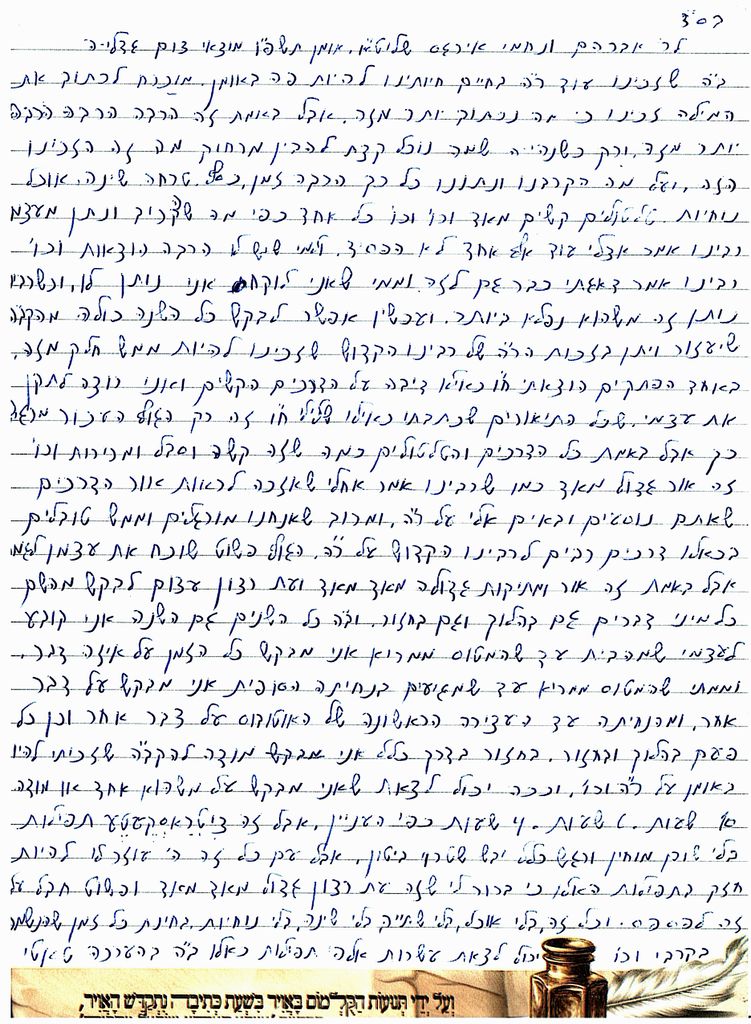 בס"ד
לר' אברהם ונחמי אירגס שליט"א, אומן תשפ"ו מוצאי צום גדליה
ב"ה שזכינו עוד ר"ה בחיים חיותינו להיות פה באומן. מוכרח לכתוב את
המילה זכינו כי מה נכתוב יותר מזה, אבל באמת זה הרבה הרבה הרבה
יותר מזה, ורק כשנהיה שמה נוכל קצת להבין מרחוק מה זה הזכינו
הזה, ועל מה הקרבנו ונתננו כל כך הרבה זמן, כסף, טרחה שינה, אוכל
נוחיות. טלטולים קשים מאד וכו' וכו' כל אחד כפי מה שהקריב ונתן מעצמו
רבינו אמר אצלי עוד אף אחד לא הפסיד. ולמי שיש לו הרבה הוצאות וכו'
רבינו אמר דאגתי כבר גם לזה וממי שאני לוקח אני נותן לו, וכשרבינו
נותן זה משהוא נפלא ביותר. ועכשיו אפשר לבקש כל השנה כולה מהקב"ה
שיעזור ויתן בזכות הר"ה של רבינו הקדוש שזכינו להיות ממש חלק מזה.
באחד הפתקים הוצאתי ח"ו כאילו דיבה על הדרכים הקשים ואני רוצה לתקן
את עצמי. שכל התיאורים שכתבתי כאילו שלילי ח"ו זה רק הגוף העכור מרגיש
כך אבל באמת כל הדרכים והטלטולים כמה שזה קשה וסבל ומכירות וכו'
זה אור גדול מאד כמו שרבינו אמר אחלי שאזכה לראות אור הדרכים
שאתם נוסעים ובאים אלי על ר"ה, ומרוב שאנחנו מורגלים וממש טובלים
בכאלו דרכים רבים לרבינו הקדוש על ר"ה. הגוף פשוט שוכח את עצמו לגמרי
אבל באמת זה אור ומתיקות גדולה מאד מאד ועת רצון עצום לבקש מהשם
כל מיני דברים גם בהלוך וגם בחזור. וב"ה כל השנים גם השנה אני קובע
לעצמי שמהבית עד שהמטוס ממריא אני מבקש כל הזמן על איזה דבר.
וממתי שהמטוס ממריא עד שמגיעים בנחיתה הסופית אני מבקש על דבר
אחר, ומהנחיתה עד העצירה הראשונה של האוטובוס על דבר אחר וכן כל
פעם בהלוך ובחזור. בחזור בדרך כלל אני מבקש מודה להקב"ה שזכיתי להיות
באומן על ר"ה וכו', וככה יכול לצאת שאני מבקש על משהוא אחד או מודה
שעות. שעות. שעות כפי העניין, אבל זה תפילות
בלי שום מוחין ורגש כלל יבש שטרוי ביטון, אבל עם כל זה ה' עוזר לי להיות
חזק בתפילות האלו כי ברור לי שזה עת רצון גדול מאד מאד ופשוט חבל על
זה לפספס. וכל זה, בלי אוכל, בלי שתייה בלי שינה, בלי נוחיות, בחינת כל זמן שהנשמה
בקרבי וכו' יכול לצאת עשרות אלפי תפילות כאלו ב"ה בהערכה
וְעַל יְדֵי תְּנוּעוֹת הַקֻּלְמוֹס בָּאֲוִיר בִּשְׁעַת כְּתִיבָה נִתְקַדֵּשׁ הָאֲוִיר,